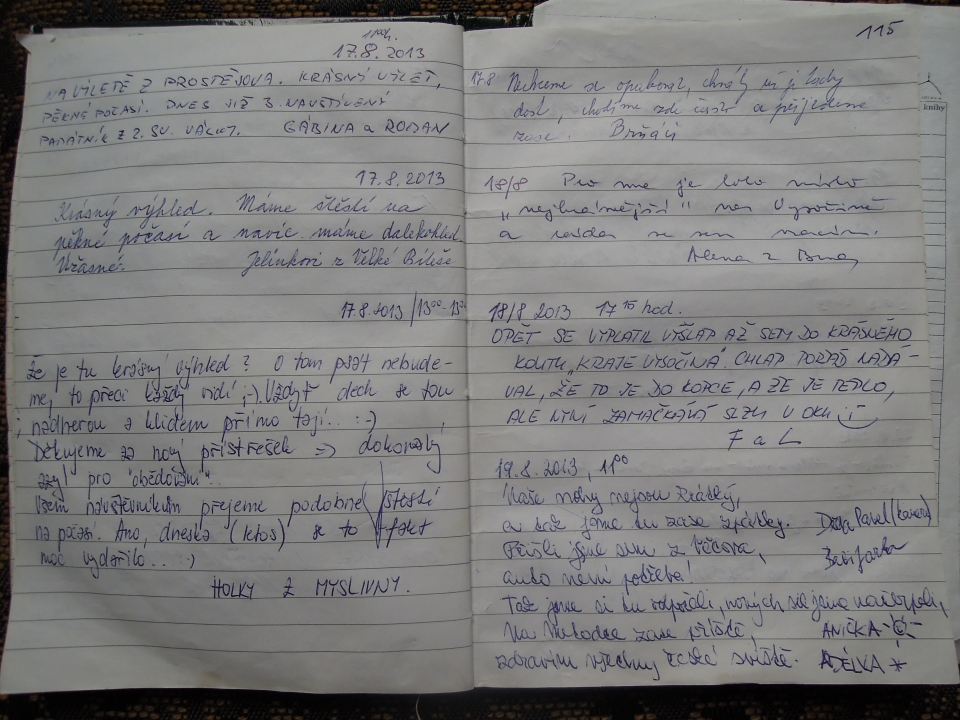 17.8.2013
NA VÝLETĚ Z PROSTĚJOVA. KRÁSNÝ VÝLET,
PĚKNÉ POČASÍ. DNES JIŽ 3. NAVŠTÍVENÝ
PAMÁTNÍK Z 2. SV. VÁLKY. GÁBINA a ROMAN
17.8.2013
Krásný výhled. Máme štěstí na
pěkné počasí a navíc máme dalekohled
Úžasné. Jelínkovi z Velké Bíteše
17.8.2013 / 13⁰⁰-13
Že je tu krásný výhled? O tom psát nebude-
me, to přeci každý vidí ;-) Vždyť dech se tou
nádherou a klidem přímo tají.. :-)
Děkujeme za nový přístřešek => dokonalý
azyl pro "obědování".
Všem návštěvníkům přejeme podobné štěstí
na počasí. Ano, dneska (letos) se to fakt
moc vydařilo.. :-)
HOLKY Z MYSLIVNY.
115
17.8 Nechceme se opakovat, chvály už je tady
dost, chodíme sem často a přijedeme
zase. Brňáci
18/8 Pro mne je toto místo
"nejkrásnější" na Vysočině
a ráda se sem vracím.
Alena z Brna
18/8 2013 17¹⁵ hod.
OPĚT SE VYPLATIL VÝŠLAP AŽ SEM DO KRÁSNÉHO
KOUTU, KRAJE VYSOČINA. CHLAP POŘÁD NADÁ-
VAL, ŽE TO JE DO KOPCE, A ŽE JE TEPLO,
ALE NYNÍ ZAMAČKÁVÁ SLZU V OKU :-)
F a L
19.8.2013, 11⁰⁰
Naše nohy nejsou krátký,
a tak jsme tu zase zpátky. Pavel
Přišli jsme sem z
auto není potřeba!
Tak jsme si tu odpočali, nových sil jsme načerpali,
Na zase příště, ANIČKA
zdravím všechny české sviště. ADÉLKA *
knihy